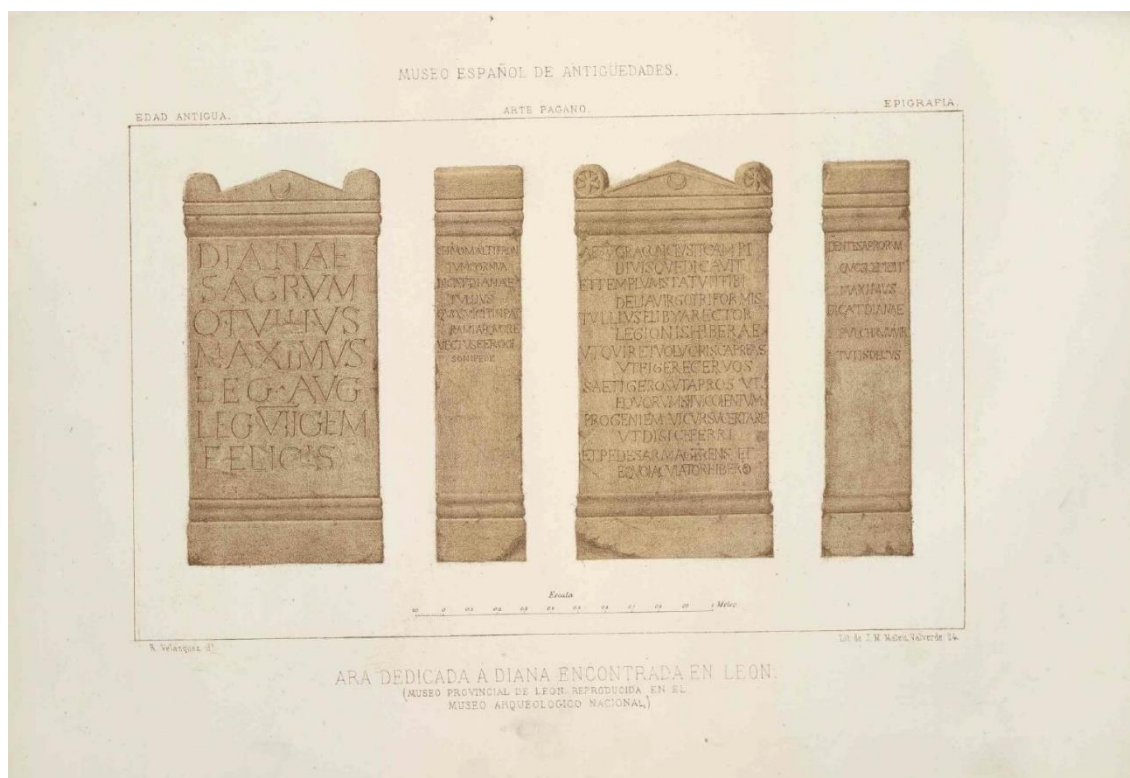 MUSEO ESPAÑOL DE ANTIGÜEDADES.
EDAD ANTIGUA.
ARTE PAGANO.
EPIGRAFIA.
DIANAE
SACRVM
Q TVLLIVS
MAXIMVS
LEG AVG
LEG VII GEM
FELICIS
CERVOM ALTIFRON
TVM CORNVA
DICAT DIANAE
TVLLIVS
QVOS VICIT IN PA
RAMI AEQVORE
VECTVS FEROCI
SONIPEDE
AEQVORA CONCLVSIT CAMPI
DIVISQVE DICAVIT
ET TEMPLVM STATVIT TIBI
DELIA VIRGO TRIFORMIS
TVLLIVS E LIBYA RECTOR
LEGIONIS HIBERAE
VT QVIRET VOLVCRIS CAPREAS
VT FIGERE CERVOS
SAETIGEROS VT APROS VT
EQVORVM SILVICOLENTVM
PROGENIEM VT CVRSV CERTARE
VT DISICE FERRI
ET PEDES ARMA GERENS ET
EQVO IACVLATOR HIBERO
DENTES APRORVM
QVOS CECIDIT
MAXIMVS
DICAT DIANAE
PVLCHRVM VIR
TVTIS DECVS
Escala
1 Metro.
R. Velazquez dº.
Lit. de J. M. Mateu, Valverde 24.
ARA DEDICADA A DIANA ENCONTRADA EN LEON.
(MUSEO PROVINCIAL DE LEON: REPRODUCIDA EN EL
MUSEO ARQUEOLOGICO NACIONAL,)